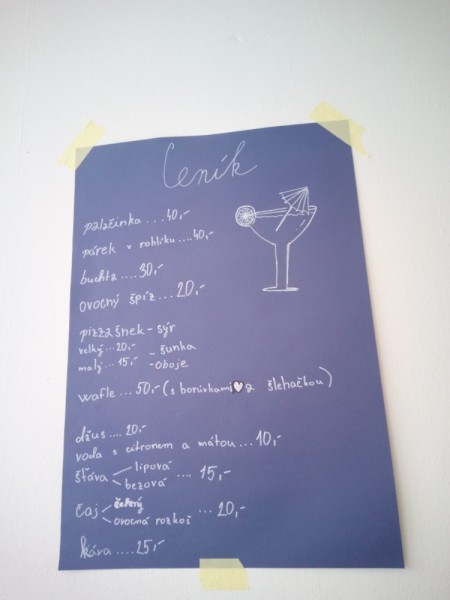 Ceník
palačinka ...40,-
párek v rohlíku ....40,-
buchta ....30,-
ovocný špíz ...20,-
pizza šnek - sýr
velký ...20,- - šunka
malý ....15,- - oboje
wafle ...50,- (s borůvkami a šlehačkou)
džus .... 20,-
voda s citronem a mátou ...10,-
šťáva lipová .... 15,-
bezová
čaj černý ... 20,-
ovocná rozkoš
káva ....25,-